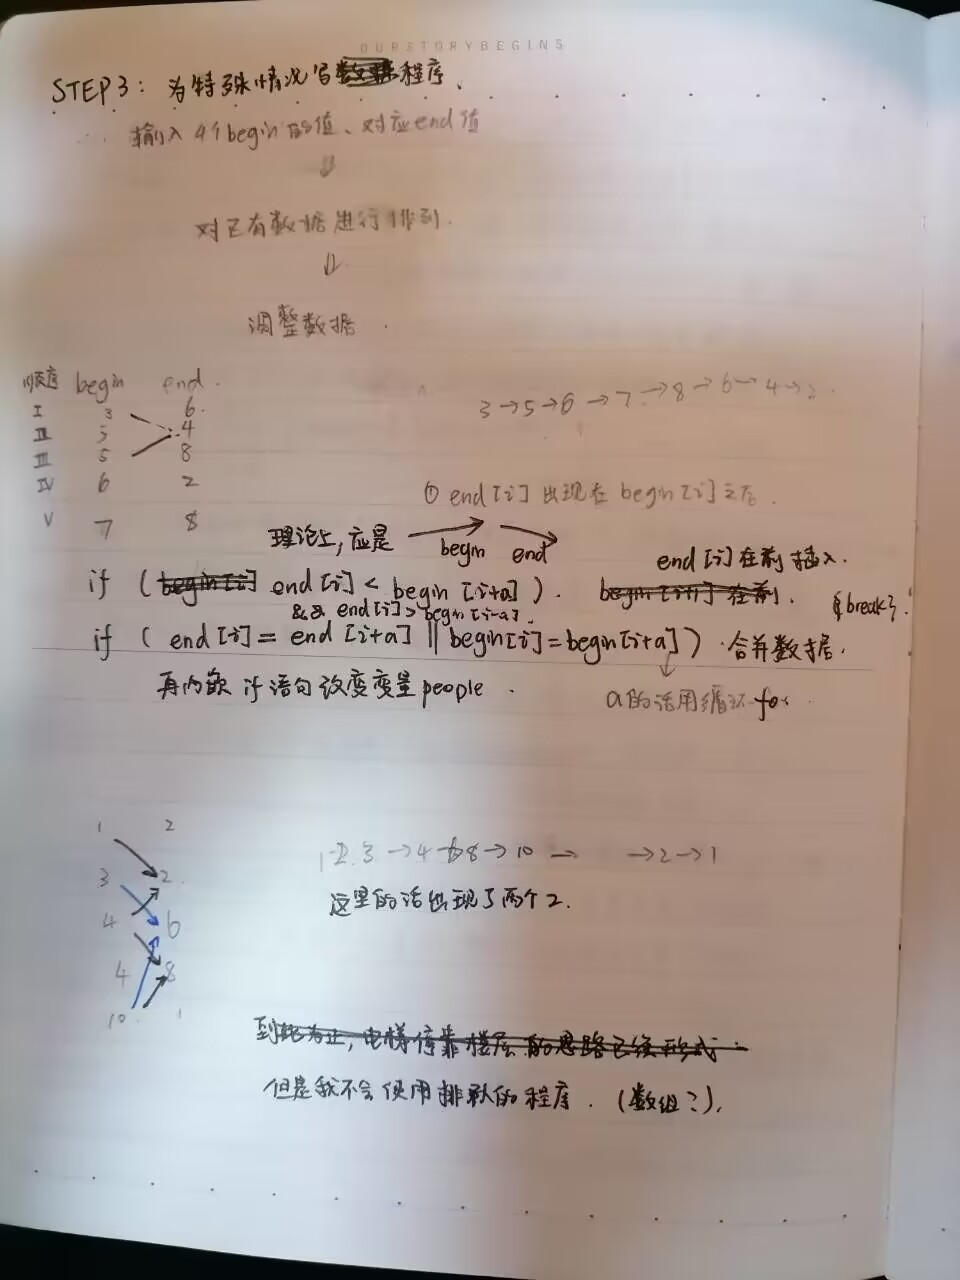 OURSTORYBEGINS
STEP3: 为特殊情况写程序.
输入4个begin的值、对应end值
⇓
对已有数据进行排列.
⇓
调整数据.
顺序 begin end.
I 3 6.
II 5 4
III 5 8
IV 6 2
V 7 8
3→5→6→7→8→6→4→2.
① end[i]出现在begin[i]之后.
理论上,应是 begin end
end[i]在前插入.
if (begin[i] end[i]<begin[i+a]). begin[i+1]在前. {break}.
&& end[i]>begin[i-a].
if (end[i]=end[i+a]||begin[i]=begin[i+a]) 合并数据.
再内嵌if语句改变变量people.
a的话用循环for
1 2
3 2
4 6
4 8
10 1
这里的话出现了两个2.
到此为止,电梯停靠楼层的思路已经形成.
但是我不会使用排列的程序.(数组?).